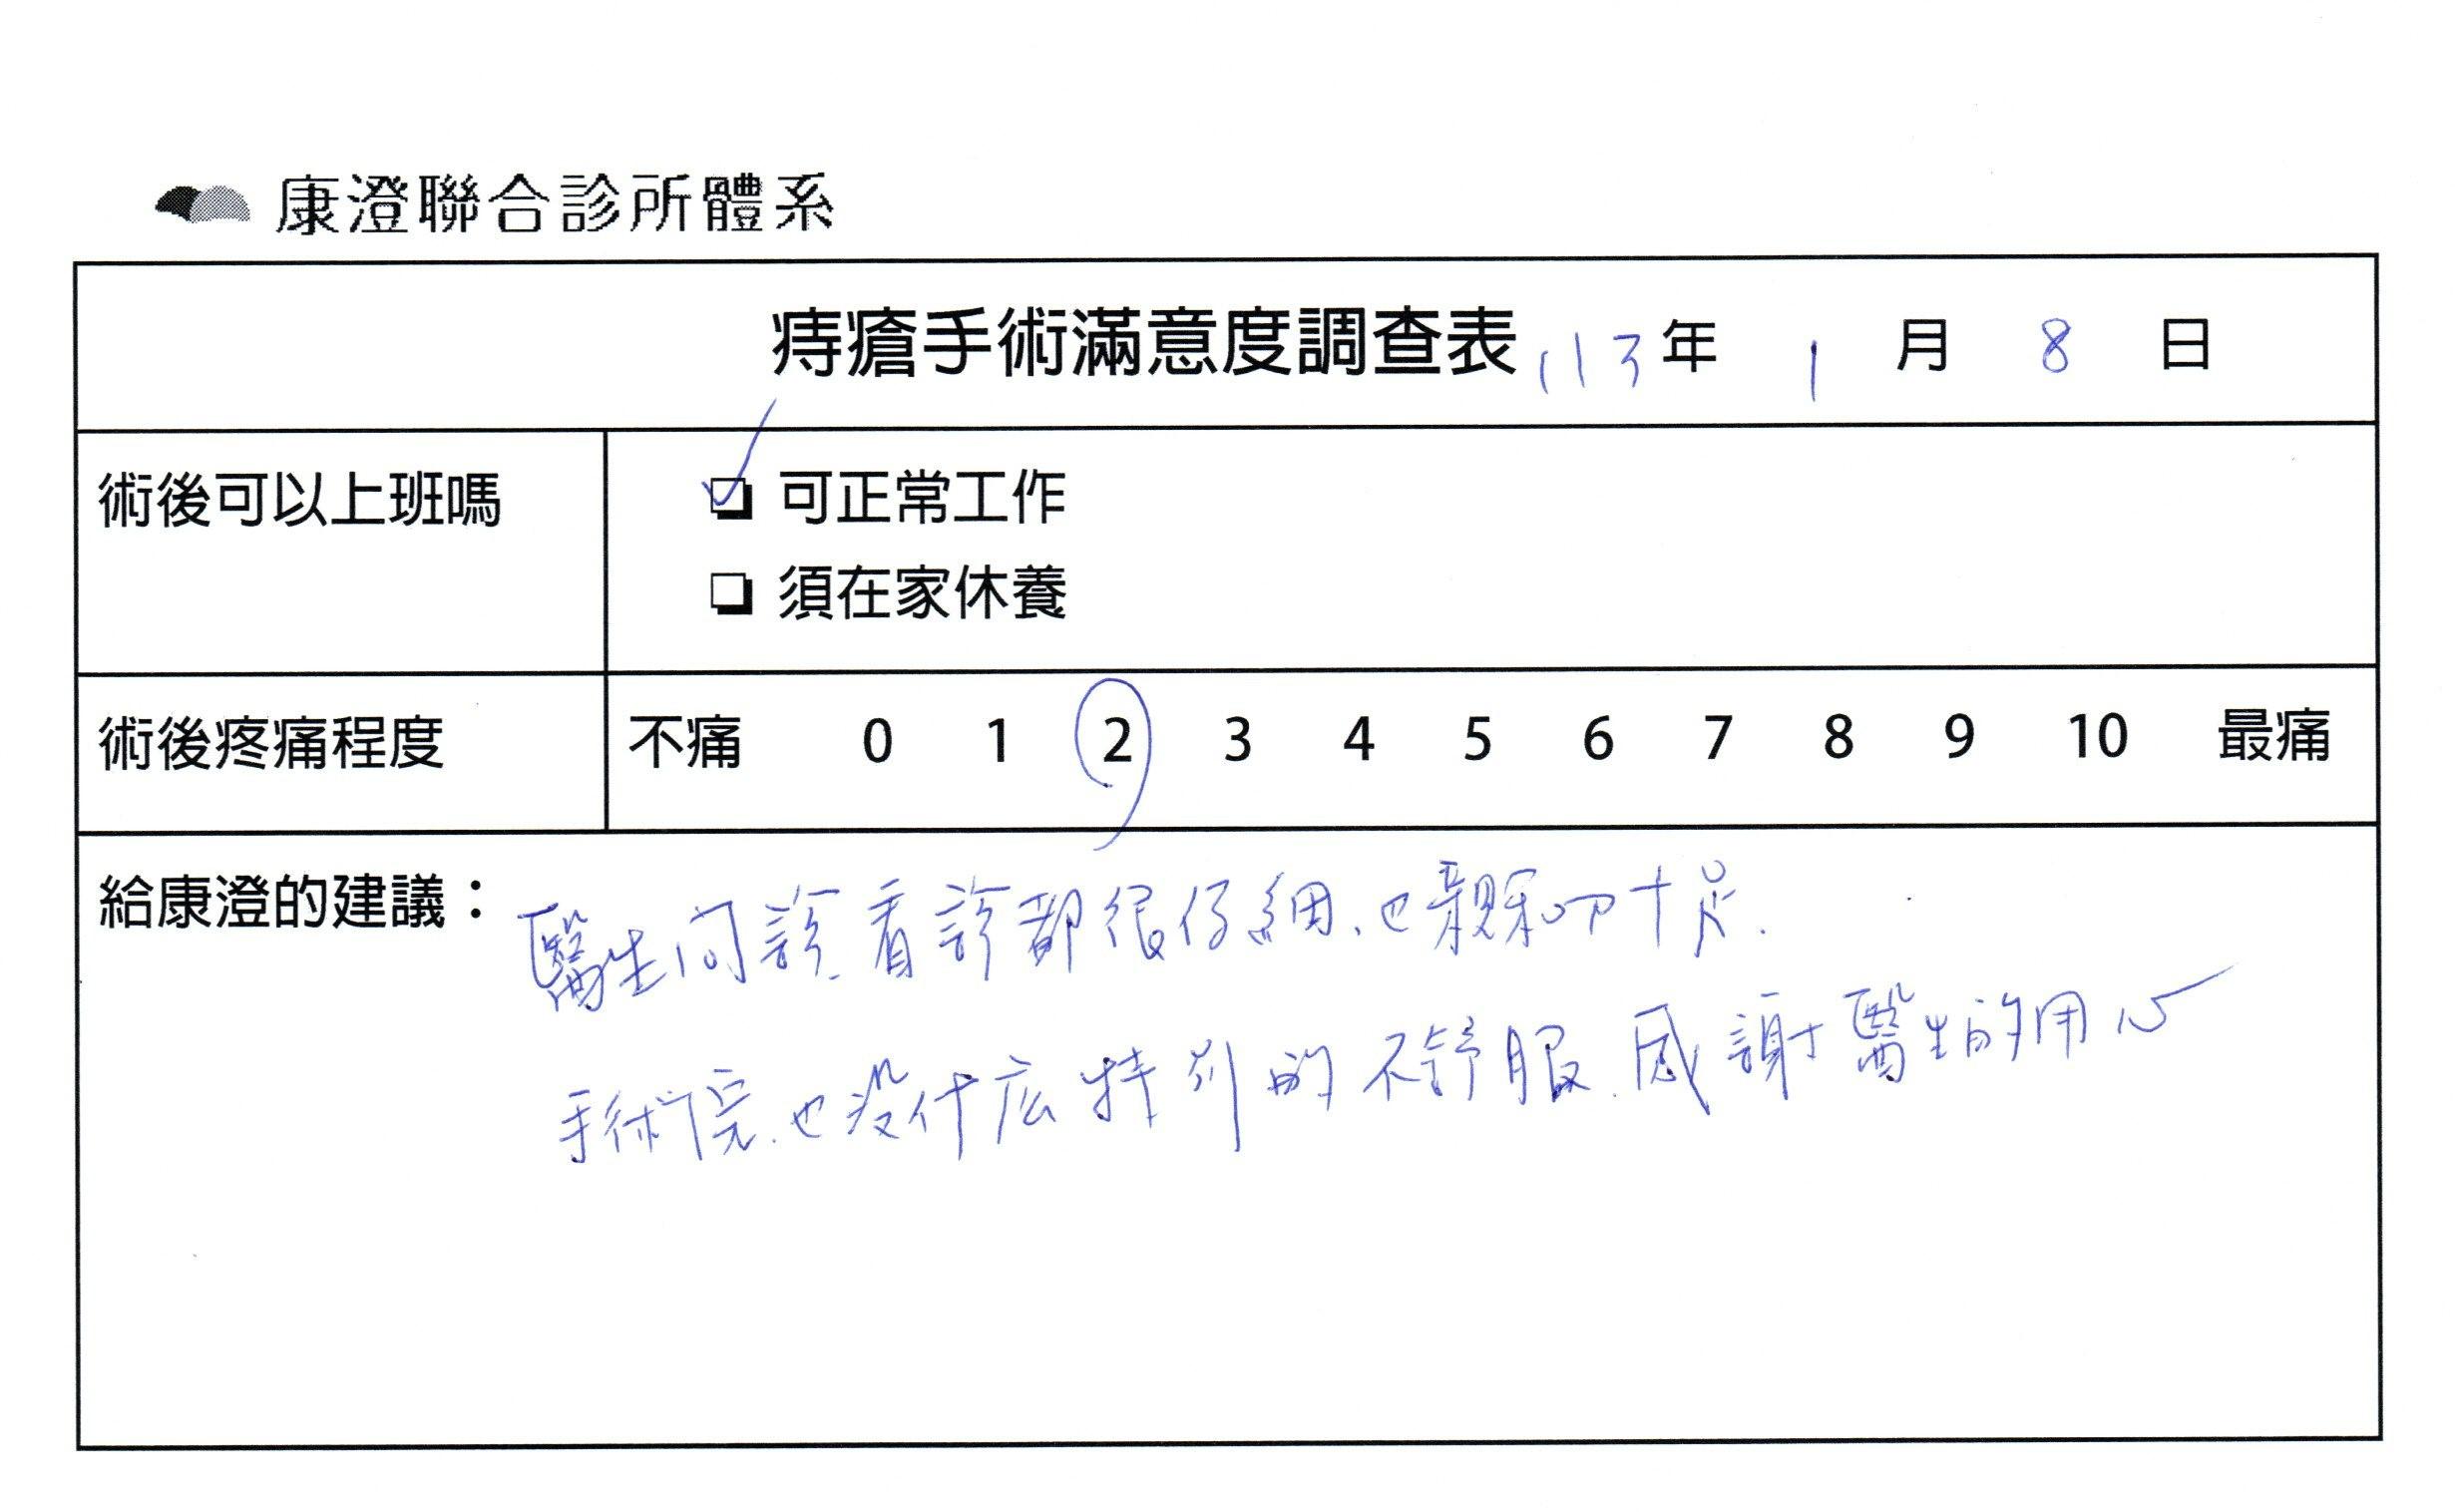 康澄聯合診所體系
痔瘡手術滿意度調查表 113 年 1 月 8 日
術後可以上班嗎
可正常工作
須在家休養
術後疼痛程度 不痛 0 1 2 3 4 5 6 7 8 9 10 最痛
給康澄的建議:醫生问診.看診都很仔細、也親和
手術完.也没什広特別的不舒服.感謝醫生的用心